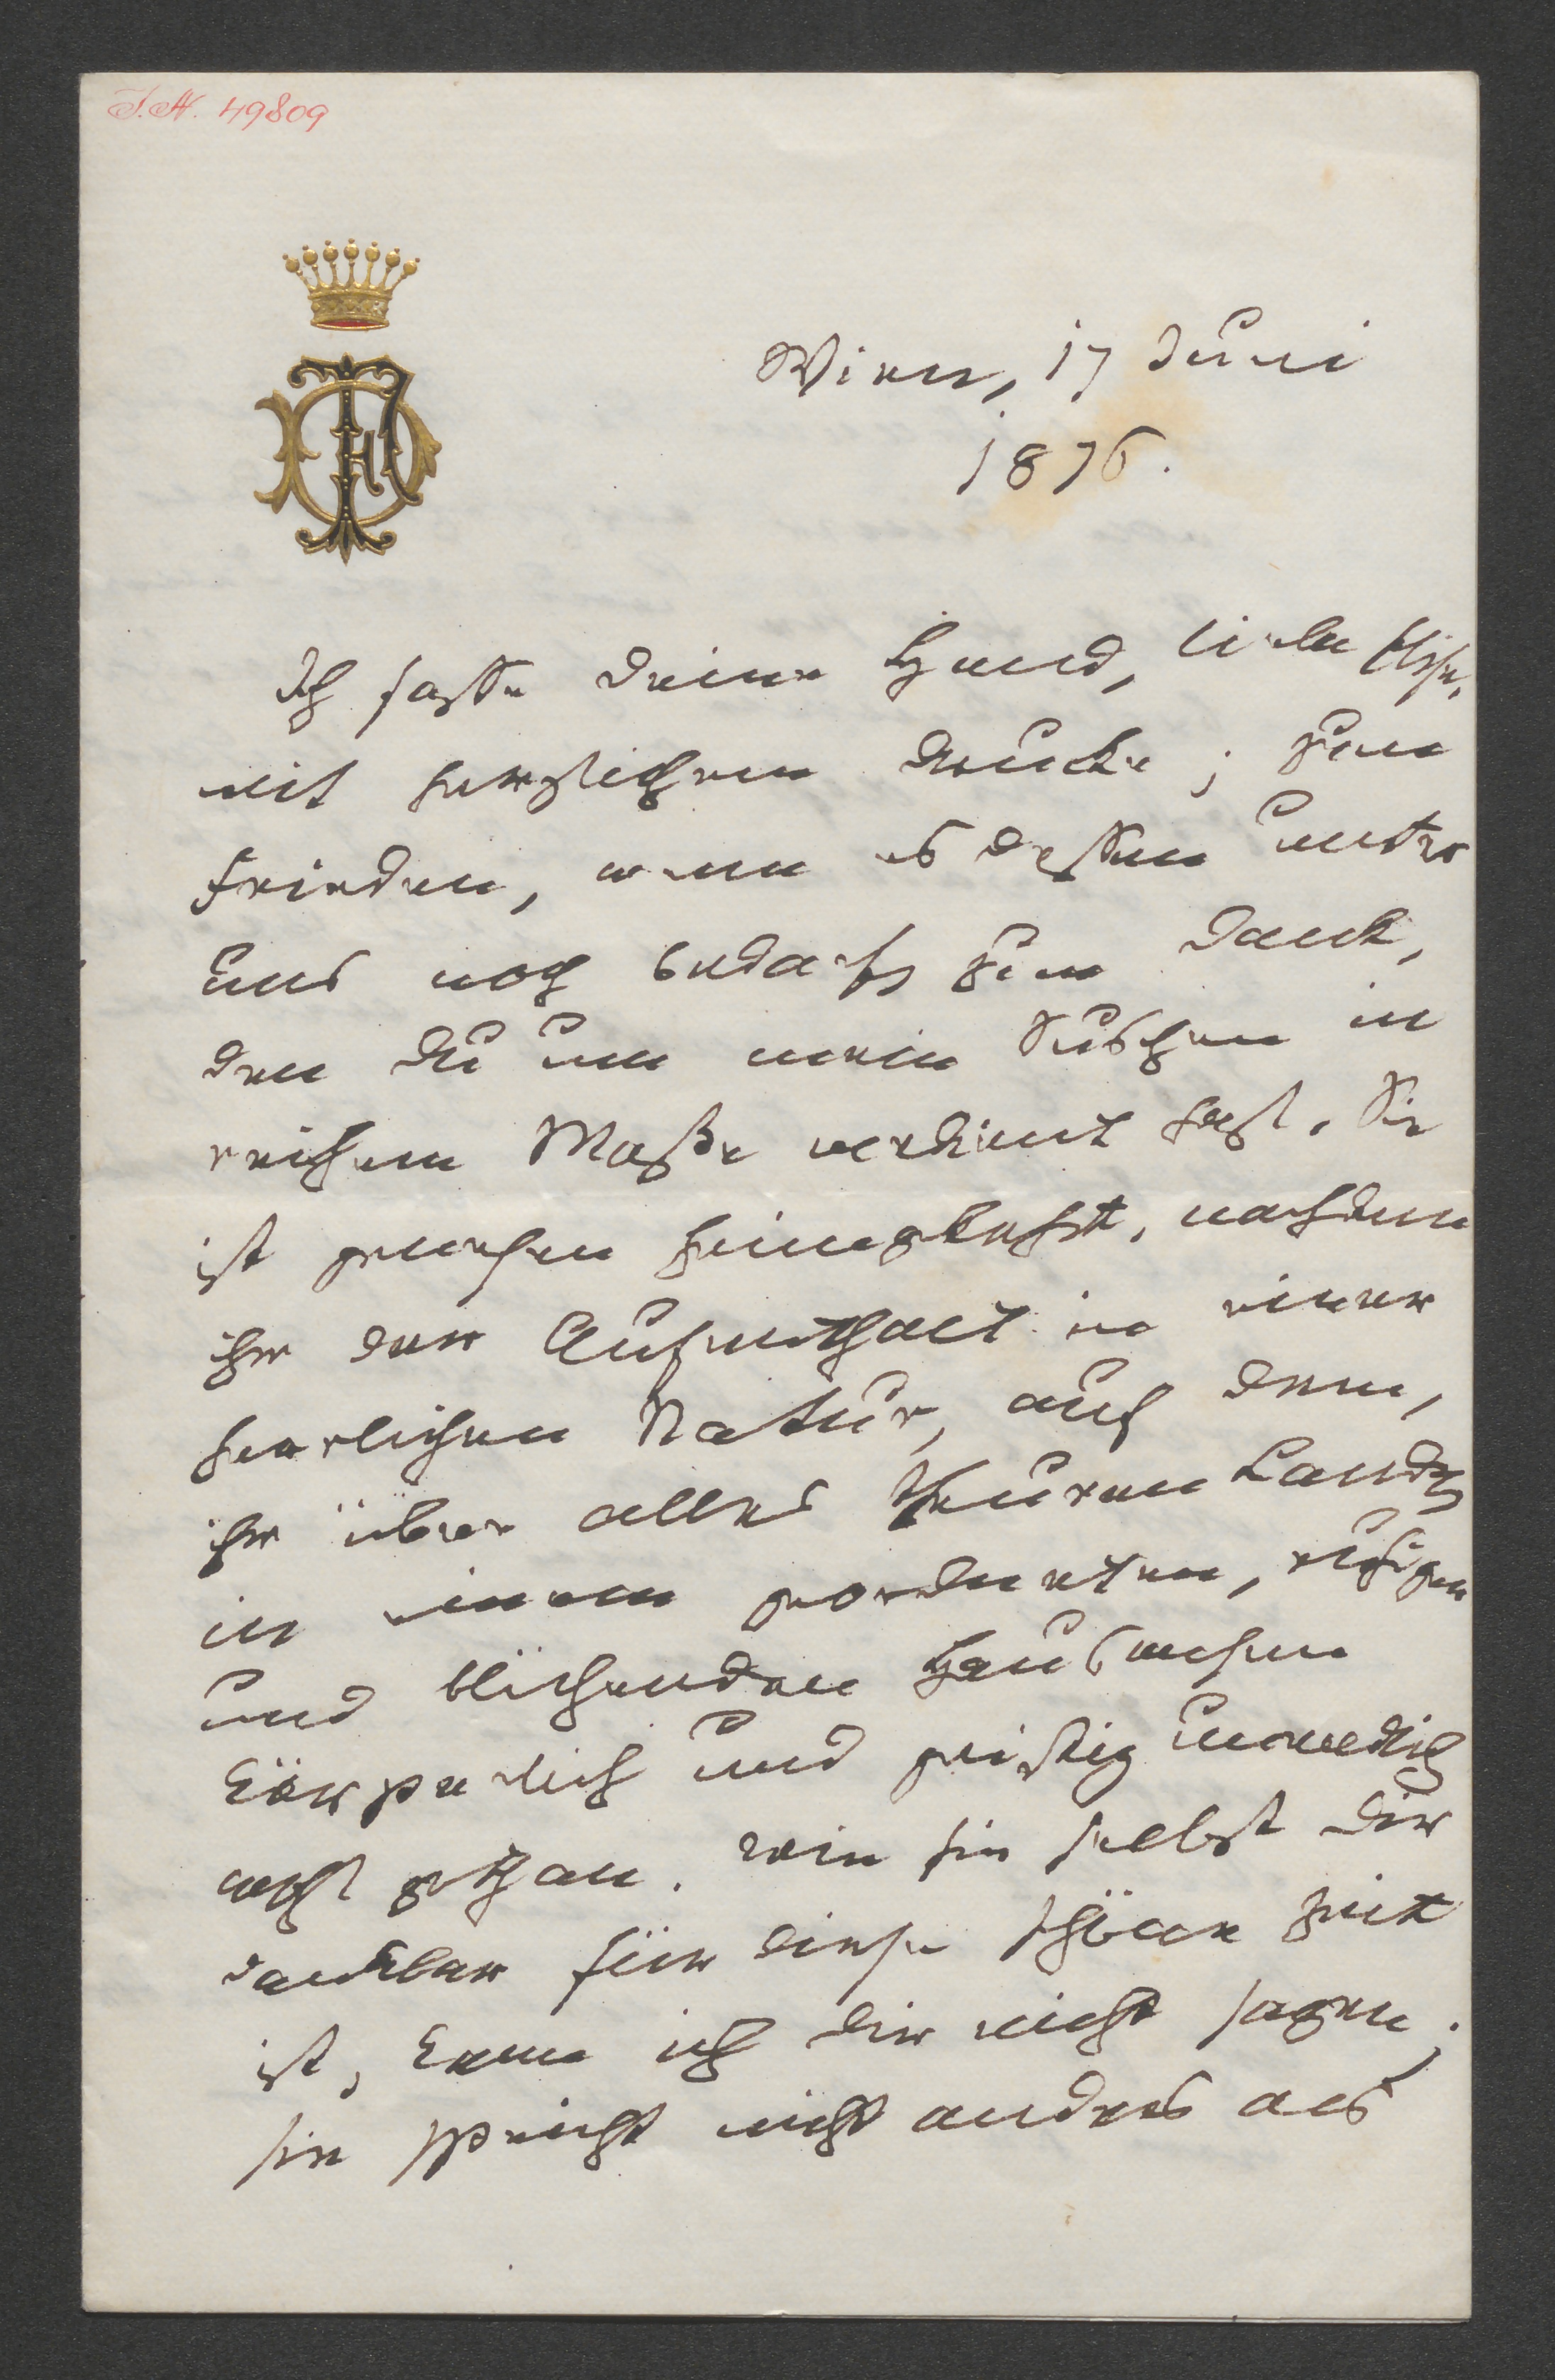 I.N. 49809
Wien, 17 Juni
1876.
Ich fasse deine Hand, liebe
mit herzlichem Drucke; zum
Frieden, wenn es dessen unter
uns noch bedarf, zum Dank,
den du um mein Suschen in
reichem Maße verdient hast. Sie
ist genesen heimgekehrt, nachdem
ihr der Aufenthalt in einer
herrlichen Natur, auf dem,
ihr über alles theuren Lande,
in einem geordneten, ruhigen
und blühenden Hauswesen
körperlich und geistig unendlich
wohl gethan. Wie sie selbst dir
dankbar für diese schöne Zeit
ist, kann ich dir nicht sagen;
sie spricht nicht anders als